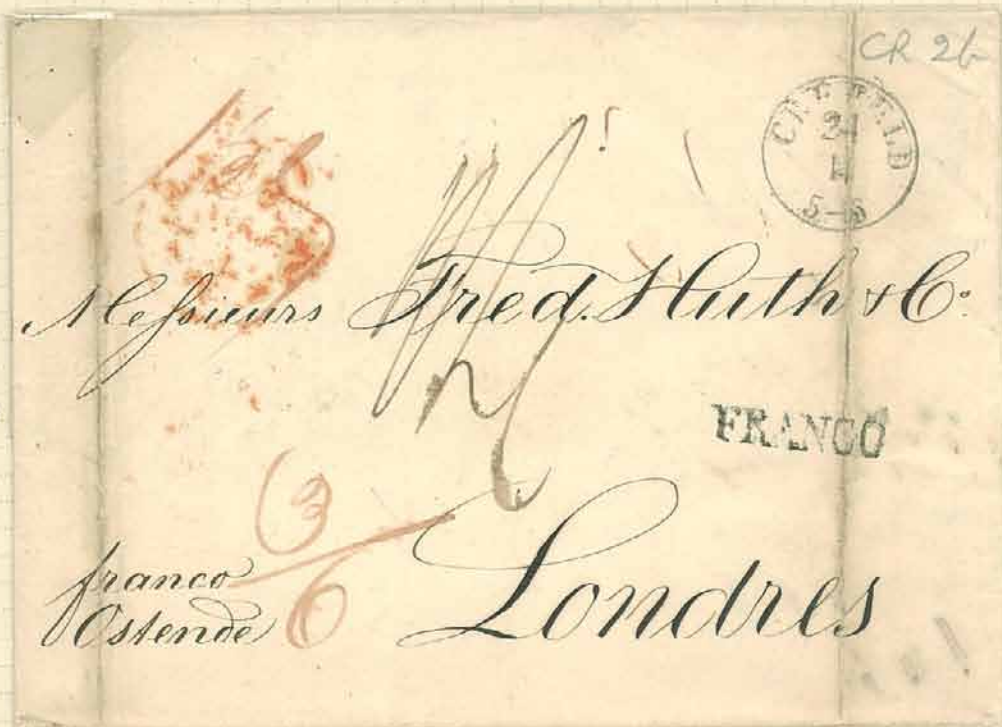 CR 2b
CREFELD
24
5-6
Messieurs Fred. Huth & Co.
FRANCO
3/6
franco
Ostende
Londres